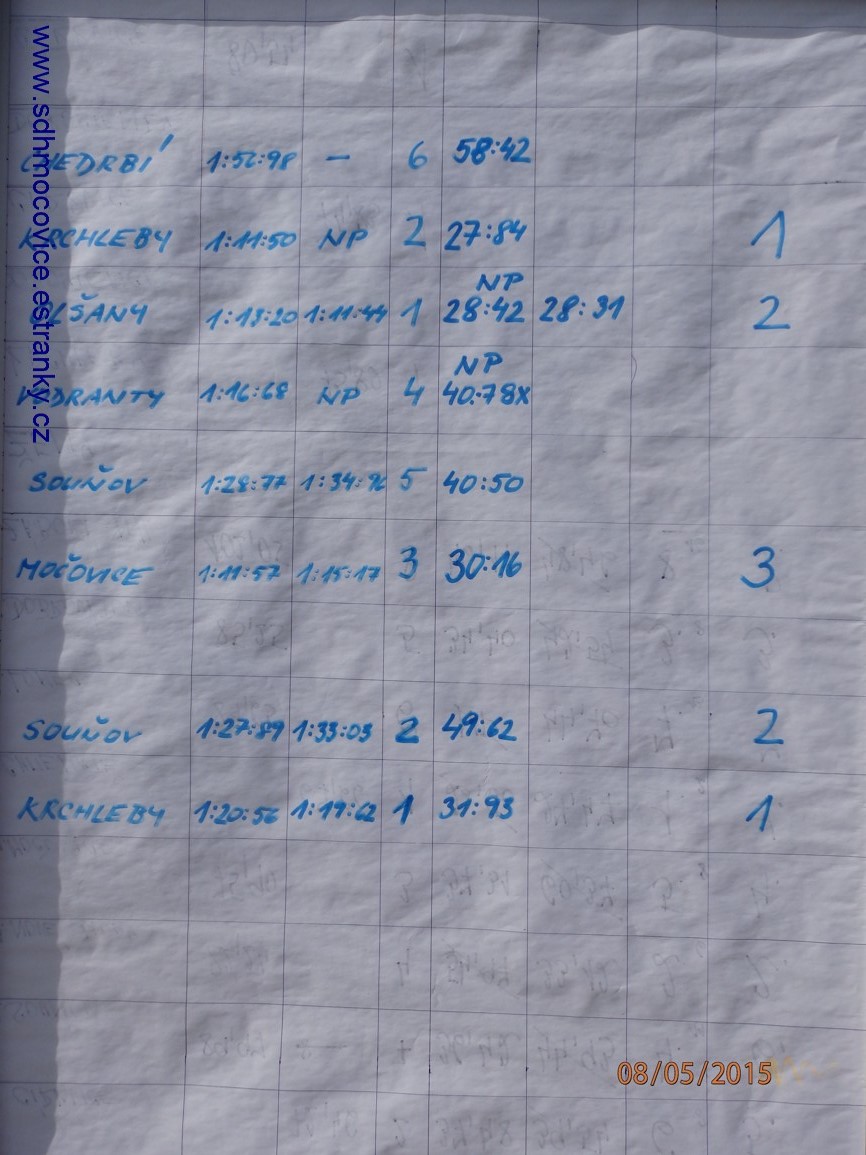 www.sdhmocovice.estranky.cz
CHEDRBÍ 1:52:98 — 6 58:42
KRCHLEBY 1:11:50 NP 2 27:84 1
NP
OLŠANY 1:13:20 1:11:44 1 28:42 28:31 2
NP
VODRANTY 1:16:68 NP 4 40:78X
SOUŇOV 1:28:77 1:34:96 5 40:50
MOČOVICE 1:11:57 1:15:17 3 30:16 3
SOUŇOV 1:27:89 1:33:03 2 49:62 2
KRCHLEBY 1:20:56 1:19:62 1 31:93 1
08/05/2015